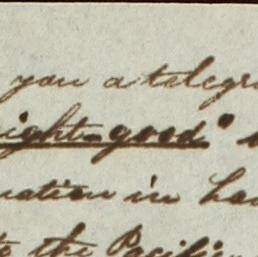 you a telegra
ight-good"
uation in
to the Pacific